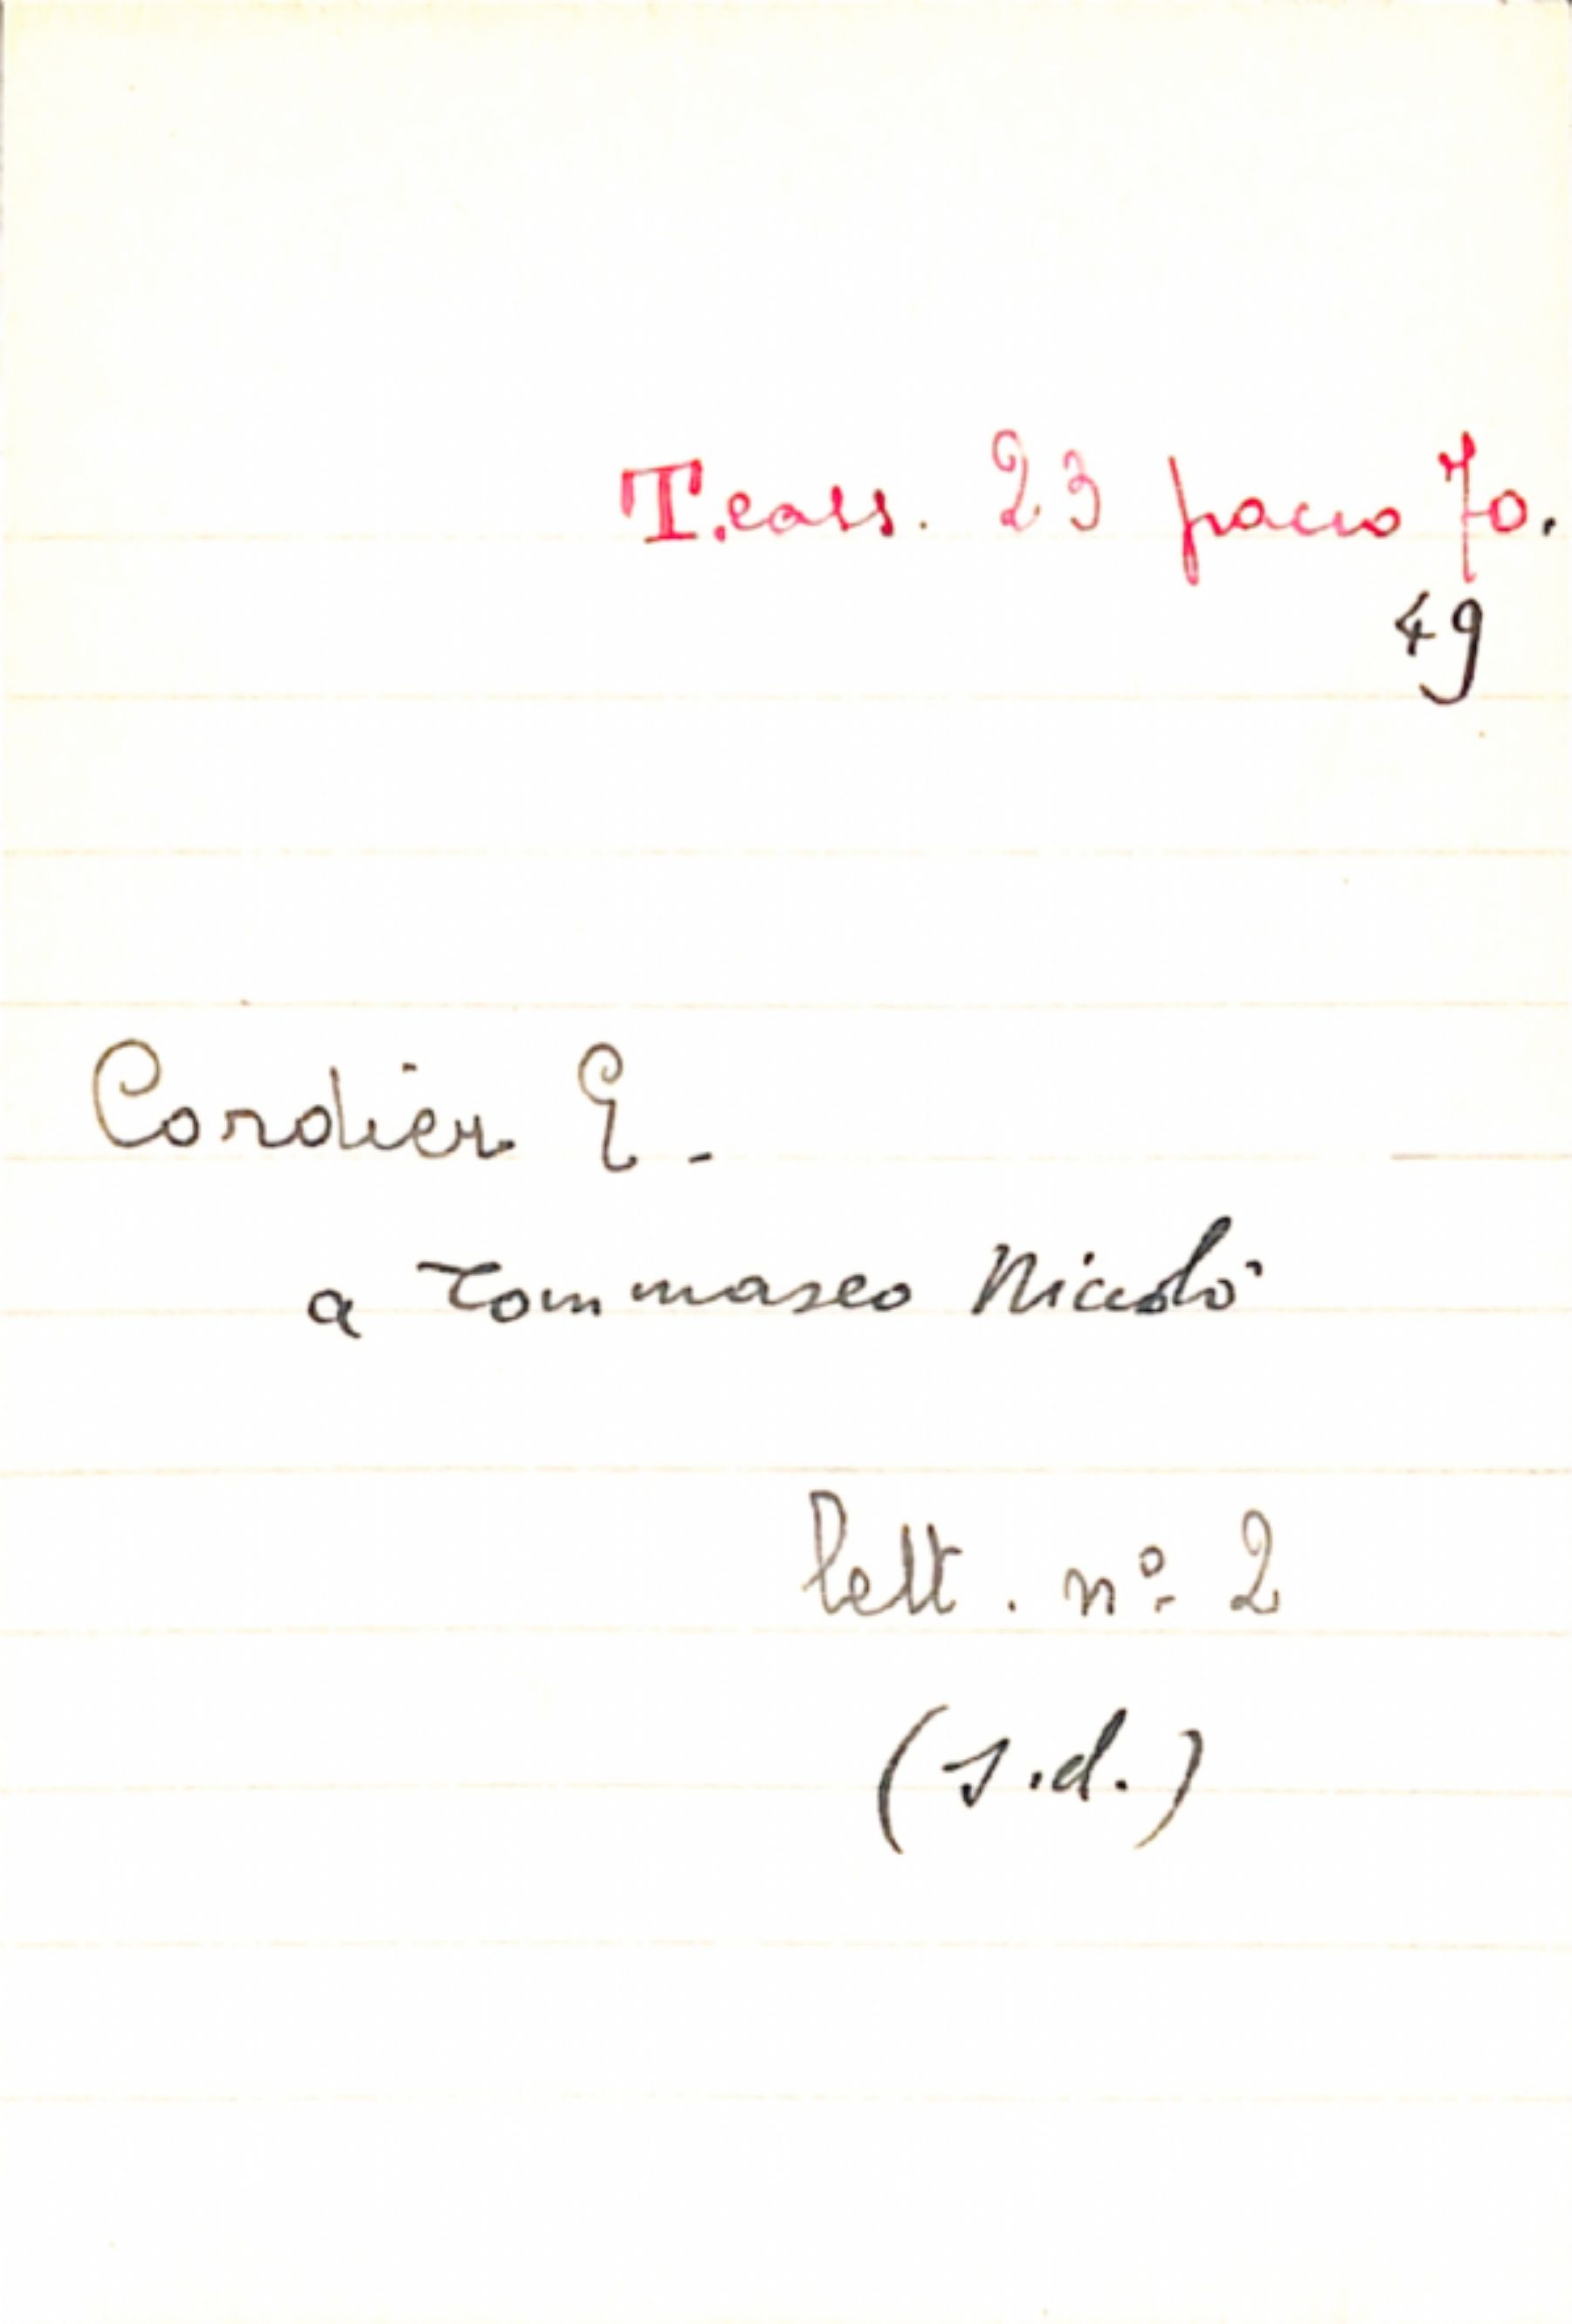 T.cass. 23 pacco 70.
49
Cordier E.
a Tommaseo Niccolò
lett. nº 2
(s.d.)